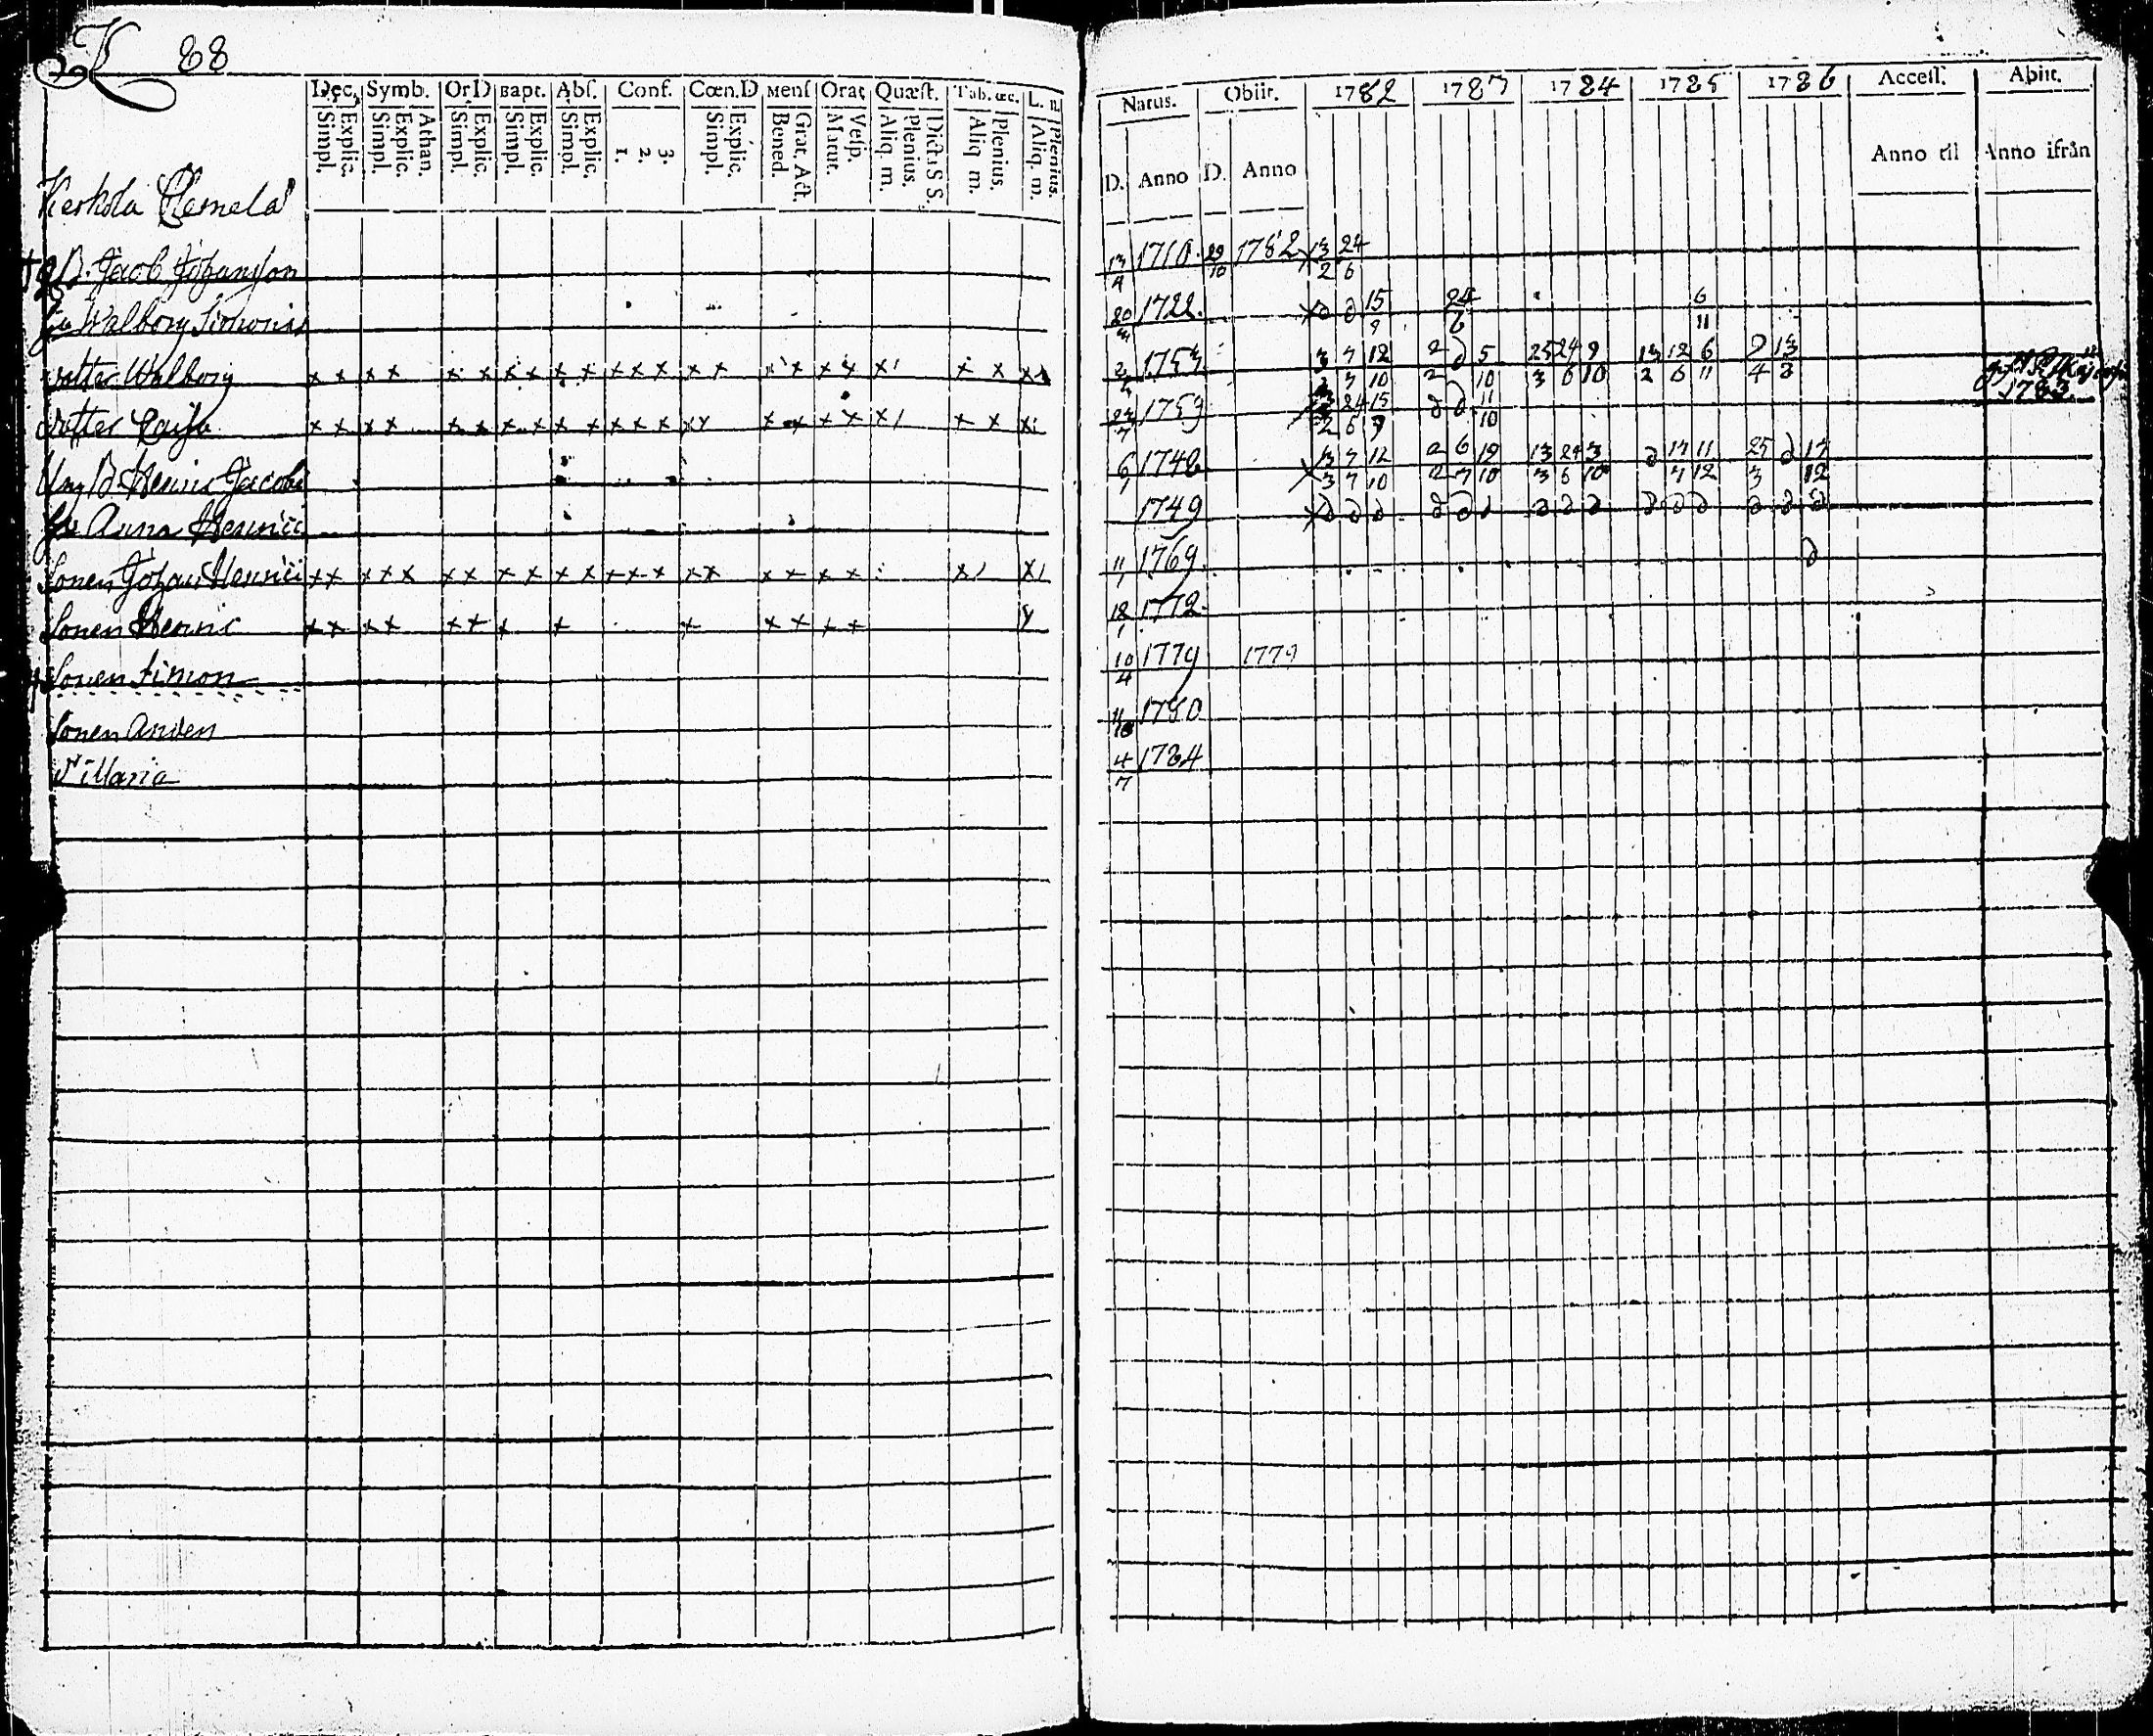 K 88
Dec. Symb. Or D Bapt. Abs. Conf. Cœn. D Mens Orat Quæst. Tab. œc. L. n.
Simpl. Explic. Simpl. Explic. Athan. Simpl. Explic. Simpl. Explic. Simpl. Explic. 1. 2. 3. Simpl. Explic. Bened. Grat. Act. Matut. Vesp. Aliq. m. Plenius. Dicta S S. Aliq m. Plenius. Aliq. m. Plenius.
Natus. Obiit. 1782 1783 1784 1785 1786 Access. Abiit.
D. Anno D. Anno Anno til Anno ifrån
Kerkola Klemelä
B. Jacob Johansson 13/4 1710. 29/10 1782 x 13/2 24/6
hu Walborg Simonis 20/3 1722. x 15/9 24/6 6/11
dotter Walborg x x x x x x x x x x x x x x x x x x x x x x 1753 3/3 7/7 12/10 2/2 5/10 25/3 24/6 9/10 13/2 12/6 6/11 9/4 13/8
dotter Caisa x x x x x x x x x x x x x x x x x x x x x x 24/7 1759 24/6 15/9 11/10 1783
Ung B. Henric Jacobs 6/1 1746 x 13/3 7/7 12/10 2/2 6/7 19/10 13/3 24/6 3/10 17/7 11/12 25/3 17/12
hu Anna Henrici 1749 x
Sonen Johan Henrici x x x x x x x x x x x x x x x x x x x x x 11/1 1769.
Sonen Henric x x x x x x x x x x x x x 18/1 1772.
Sonen Simon 10/4 1779 1779
Sonen Anders 1780
D: Maria 4/7 1784